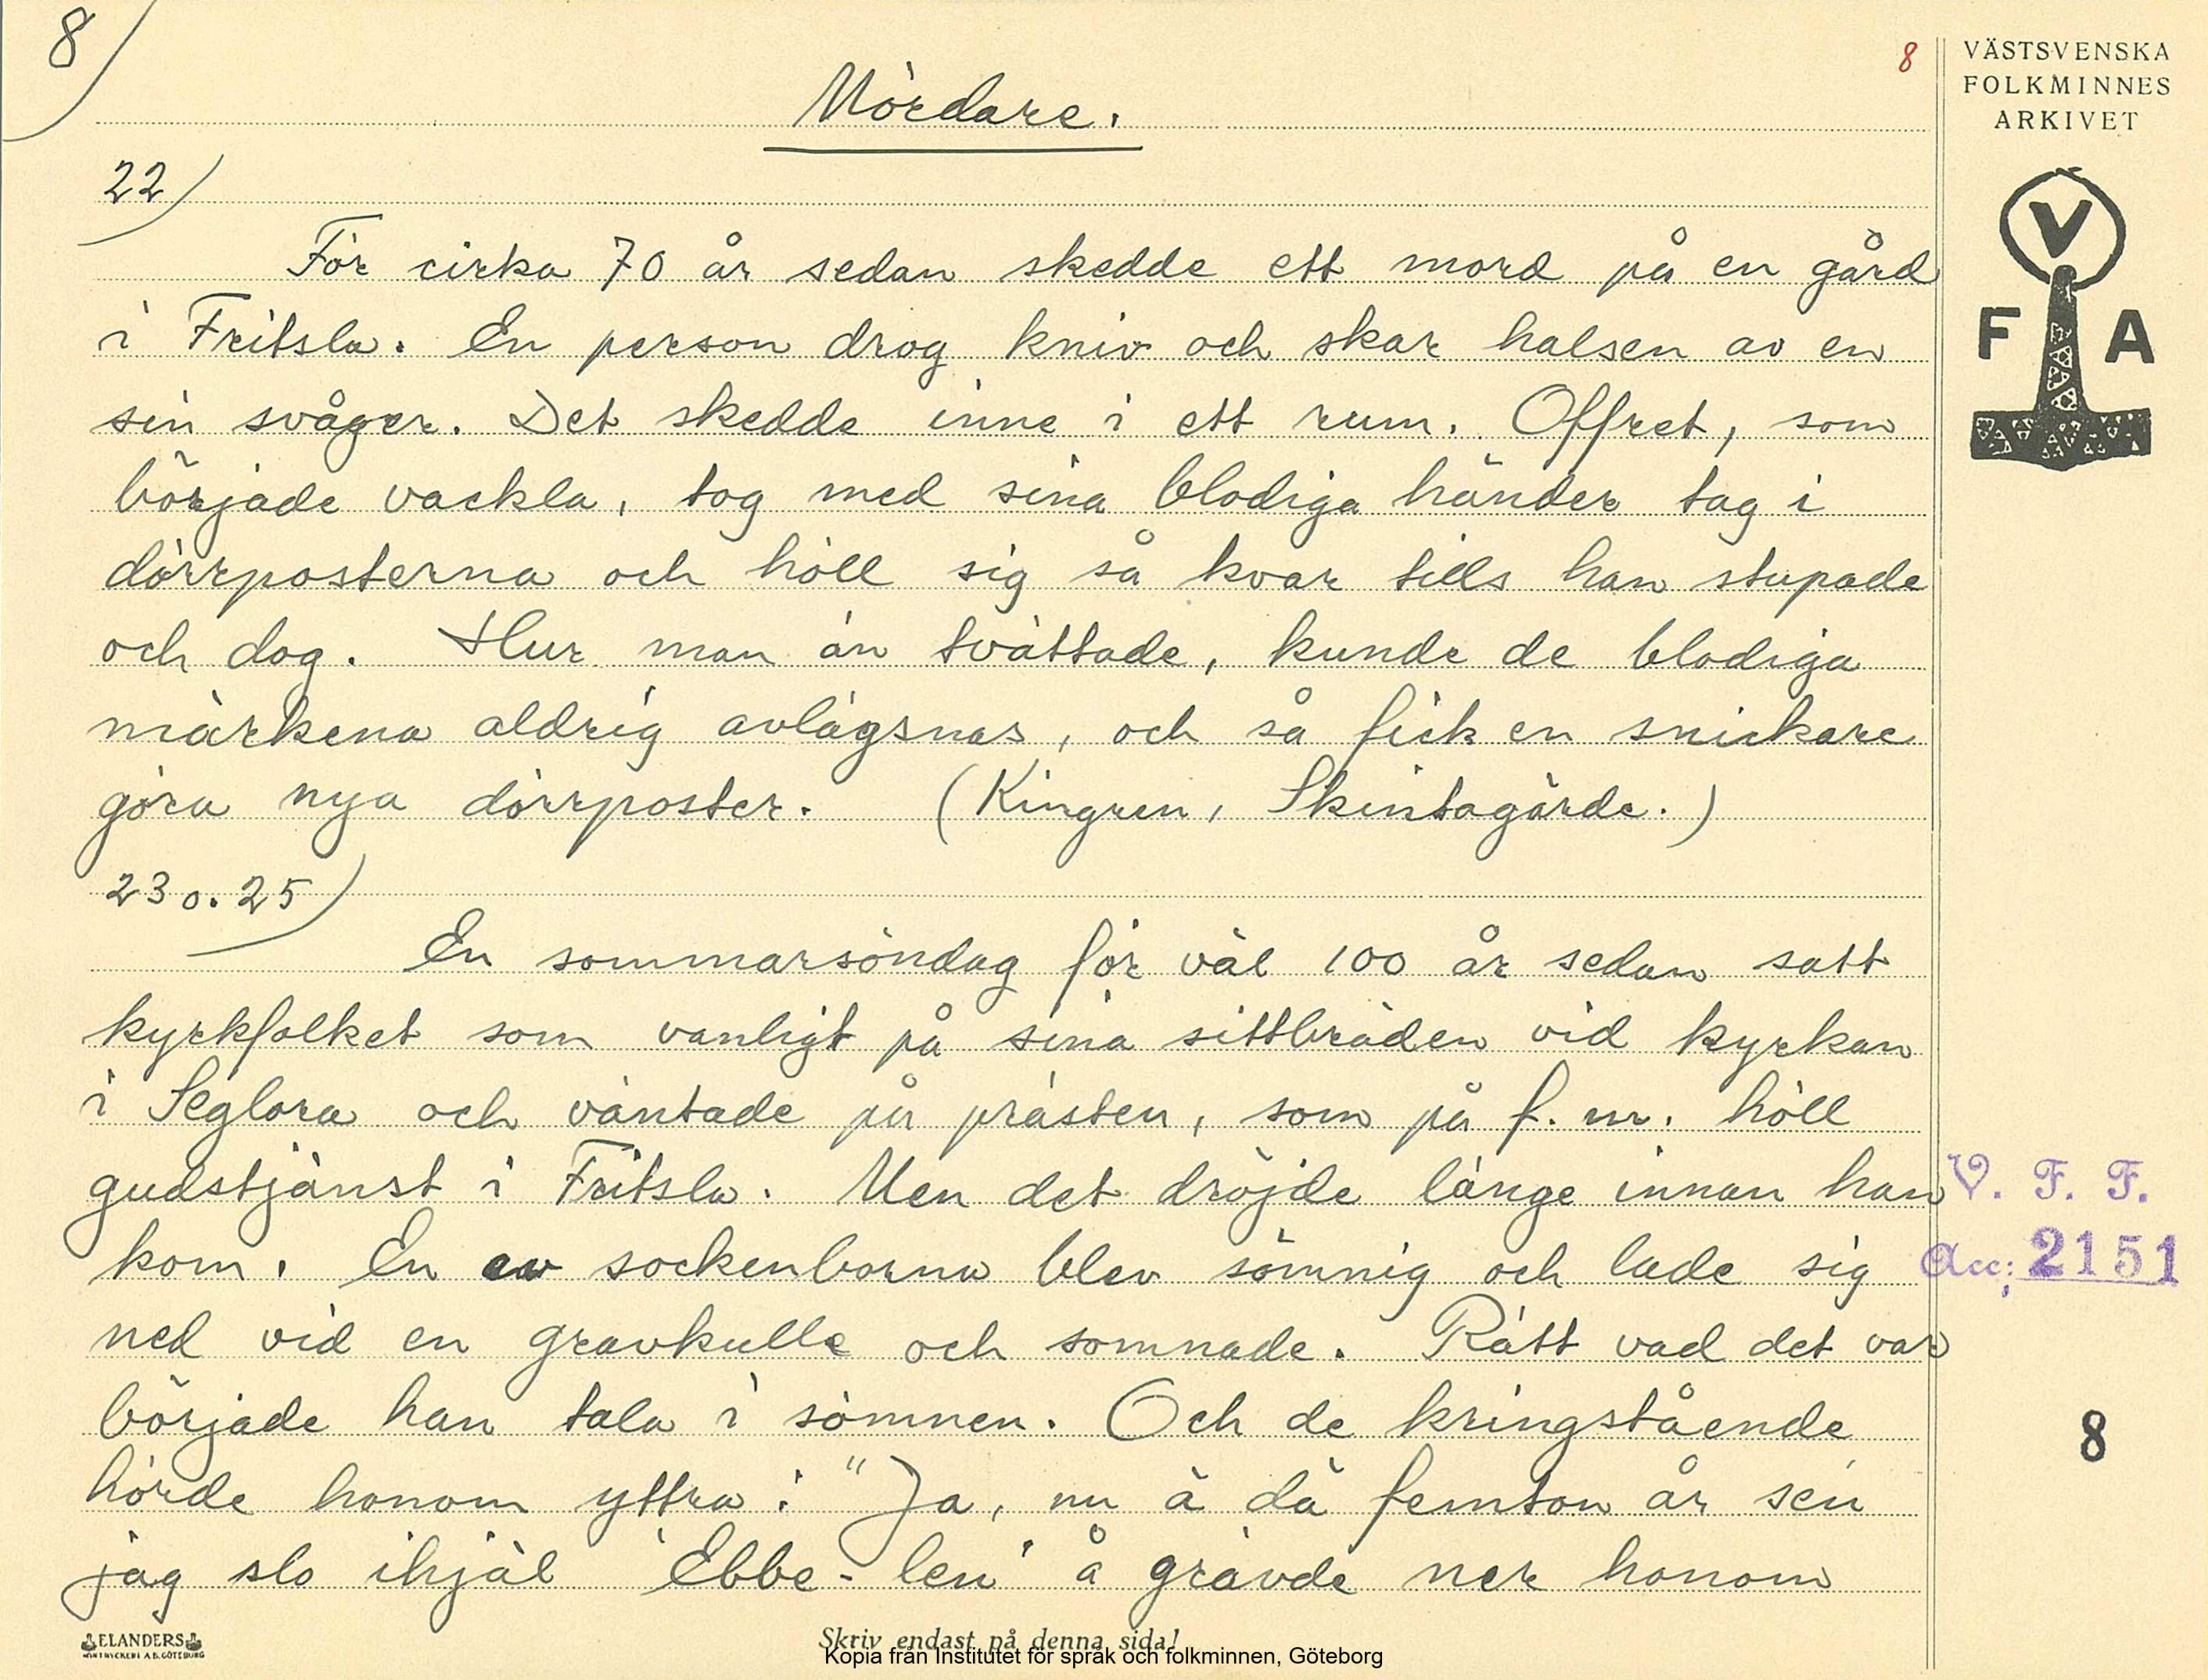 8
8
VÄSTSVENSKA
FOLKMINNES
ARKIVET
V
F A
Mördare.
22)
För cirka 70 år sedan skedde ett mord på en gård
i Fritsla. En person drog kniv och skar halsen av en
sin svåger. Det skedde inne i ett rum. Offret, som
började vackla, tog med sina blodiga händer tag i
dörrposterna och höll sig så kvar tills han stupade
och dog. Hur man än tvättade, kunde de blodiga
märkena aldrig avlägsnas, och så fick en snickare
göra nya dörrposter. (Kingren, Skintagärde.)
23 o. 25)
En sommarsöndag för väl 100 år sedan satt
kyrkfolket som vanligt på sina sittbräden vid kyrkan
i Seglora och väntade på prästen, som på f. m. höll
gudstjänst i Fritsla. Men det dröjde länge innan han
kom. En av sockenborna blev sömnig och lade sig
ned vid en gravkulle och somnade. Rätt vad det var
började han tala i sömnen. Och de kringstående
hörde honom yttra: "Ja, nu ä dä femton år sen
jag slo ihjäl 'Ebbe-len' å grävde ner honom
V. F. F.
Acc: 2151
8
ELANDERS
BOKTRYCKERI A.B. GÖTEBORG
Skriv endast på denna sida!
Kopia från Institutet för språk och folkminnen, Göteborg